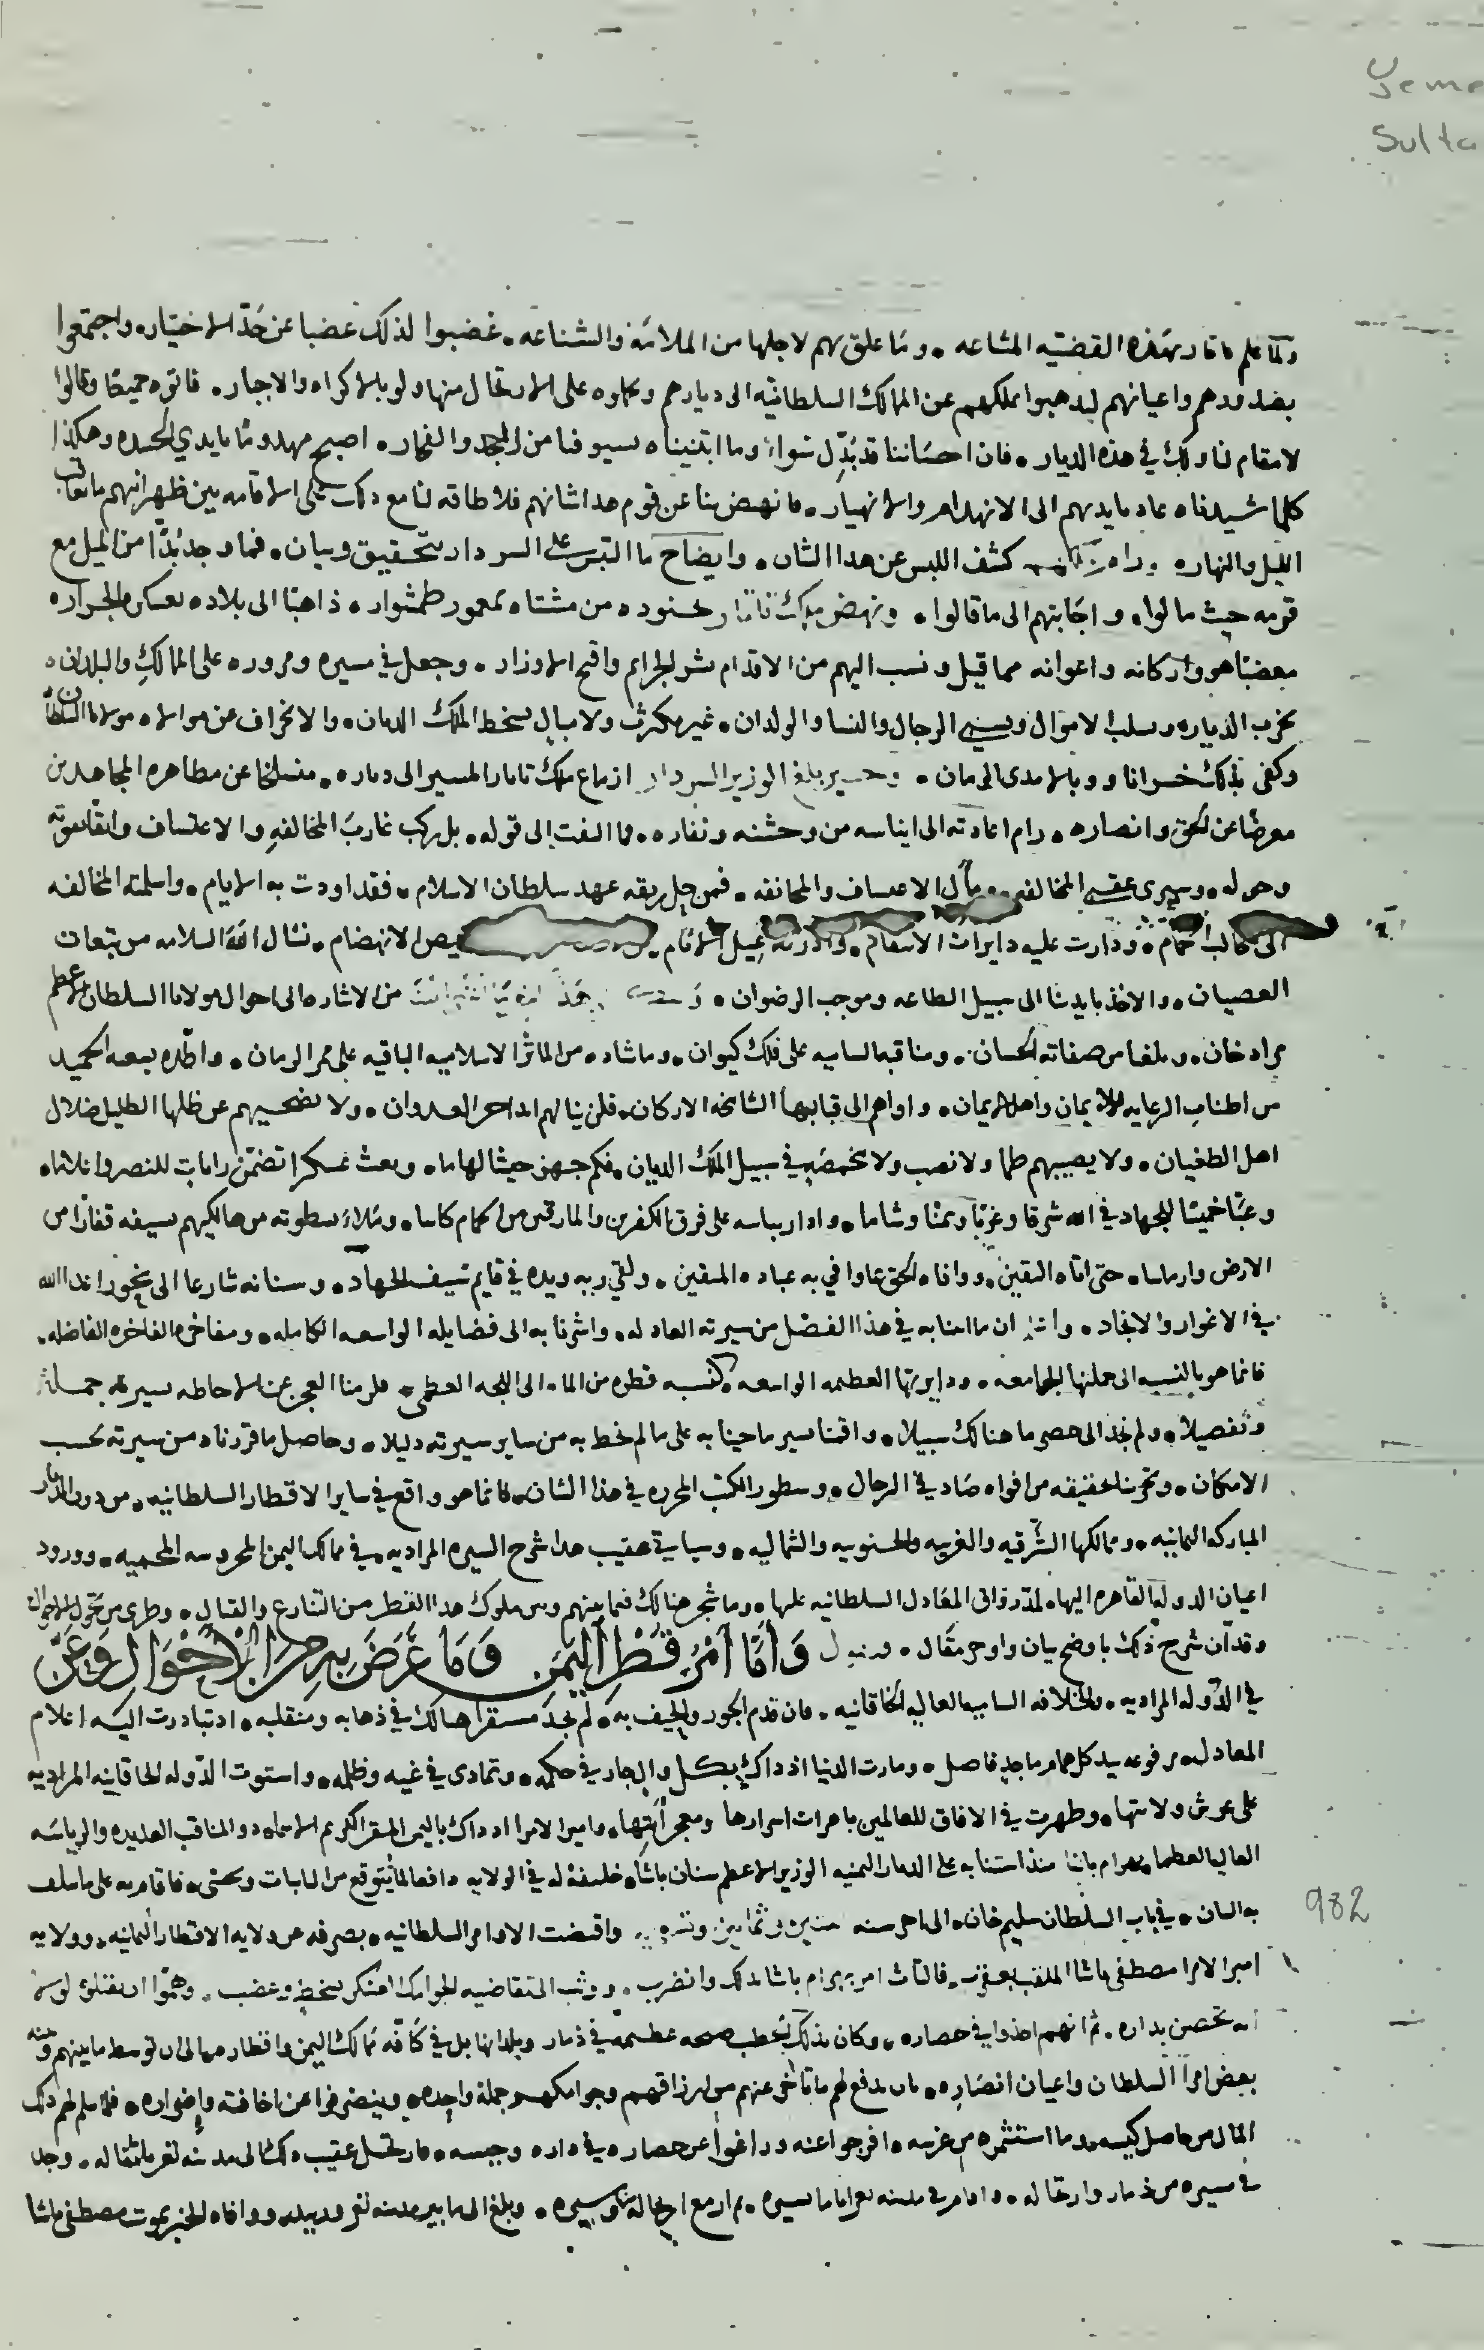 Yeme
Sulta
ولما علم تاتار بهذه القضيّه المشاعه، وما علق بهم لاجلها من الملامة والشناعه، غضبوا لذلك غضبا عن حدّ الاختيار، واجتمعوا
بصدورهم واعيانهم ليذهبوا بملكهم عن الممالك السلطانيّه الى ديارهم وحملوه على الارتحال منها ولو بالاكراه والاجبار، فاتوه جميعًا وقالوا
لا مقام لنا ولك في هذه الديار، فان احساننا قد بُدّل سواءً وما ابتنيناه بسيوفنا من المجد والفخار، اصبح مهدومًا بايدي الحسده وهكذا
كلما شيدناه عاد بايديهم الى الانهدام والانهيار، فانهض بنا عن قوم هذا شانهم فلا طاقه لنا مع ذلك على الاقامه بين ظهرانيهم ما تعاقب
الليل والنهار، كشف اللبس عن هذا الشان، وايضاح ما التبس على السردار بتحقيق وبيان، فما وجد بُدًّا من الميل مع
قومه حيث مالوا، واجابتهم الى ما قالوا، ونهض ملك تاتار بجنوده من مشتاه بمعمور طمشوار، ذاهبًا الى بلاده بعساكره الجراره
مغضبًا هو واركانه واعوانه مما قيل ونسب اليهم من الاقدام بشر الجرايم واقبح الاوزار، وجعل في مسيره ومروره على الممالكِ والبلدان،
يخرب الديار، ويسلب الاموال ويسبي الرجال والنسا والولدان، غير مكترث ولا مبالٍ بسخط الملك الديان، والانحراف عن موالاه مولانا السلطان
وكفى بذلك خسرانا ووبالا مدى الزمان، وحين بلغ الوزير السردار ازماع ملك تاتار المسير الى دياره، منسلخا عن مظاهره المجاهدين
معرضًا عن الحق وانصاره، رام اعادته الى ايناسه من وحشته ونفاره، فما التفت الى قوله، بل ركب غاربَ المخالفهِ والاعتساف واثقًا بقوته
وحوله، وسيرى عقبى المخالفه، ومآل الاعتساف والمجانفه، فمن حل ربقه عهد سلطان الاسلام، فقد اودت به الايام، واسلمته المخالفه
الى مخالب الحمام، ودارت عليه دايرات الانتقام، الانهضام، نسال الله السلامه من تبعات
العصيان، والاخذ بايدينا الى سبيل الطاعه وموجب الرضوان، من الاشاره الى احوال مولانا السلطان الاعظم
مراد خان، وبلغنا من صفاته الحسان، ومناقبه الساميه على فلك كيوان، وما شاده من الماثر الاسلاميه الباقيه على ممر الزمان، واطّده بسعيه الحميد
من اطناب الرعايه للايمان واهل الايمان، واواهم الى قبابها الشامخه الاركان، فلن ينالهم ابدا حر العدوان، ولا يضحيهم عن ظلها الظليل ضلال
اهل الطغيان، ولا يصيبهم ظما ولا نصب ولا مخمصه في سبيل الملك الديان، فكم جهز جيشا لهاما، وبعث عسكرا تضمّن رايات للنصر واعلاما،
وعبّا خميسًا للجهاد في الله شرقا وغربًا ويمنًا وشاما، وادار بباسه على فرق الكفر والمارقين من الحمام كاسا، وملاء بسطوته من هالكيهم بسيفه قفارًا من
الارض وارماسا، حتى اتاه اليقين، ووافاه الحق بما وافي به عباده المتقين، ولقي ربه ويده في قايم سيف الجهاد، وسنانه شارعا الى نحور اعدا الله
في الاغوار والانجاد، ان ما اتينا به في هذا الفصل من سيرته العادله، واشرنا به الى فضايله الواسعه الكامله، ومفاخره الفاخره الفاضله،
فانما هو بالنسبه الى جملتها الجامعه، ودايرتها العظيمه الواسعه، كنسبه قطره من الماء الى اللجه العظمى، فلزمنا العجز عن الاحاطه بسيرته جمله
وتفصيلا، ولم نجد الى حصر ما هنالك سبيلا، واقمنا يسير ما جينا به على ما لم نحط به من ساير سيرته دليلا، وحاصل ما قررناه من سيرته بحسب
الامكان، وتحرينا حقيقته من افواه صادقي الرجال، وسطور الكتب المحرره في هذا الشان، فانما هو واقع في ساير الاقطار السلطانيه، من دون الديار
المباركه اليمانيه، وممالكها الشرقيه والغربيه والجنوبيه والشماليه، وسياتي عقيب هذا شرح السيره المراديه، في ممالك اليمن المحروسه المحميه، وورود
اعيان الدوله القاهره اليها، لمدّ رواق المعَادل السلطانيه عليها، وما شجر هنالك فيما بينهم وبين ملوك هذا القطر من التنازع والقتال، وطرى من تحول الاحوال
وقد آن شرح ذلك باوضح بيان واوجز مقال، ونقول وَأَمَّا أَمْرُ قُطْرِ اَلْيَمَنِ وَمَا عَرَضَ بِهِ مِنَ اْلأَحْوَالِ وَعَنَّ
في الدوله المراديه، والخلافه الساميه العاليه الخاقانيه، فان قدم الجور والحيف به، لم يجد مستقرا هنالك في ذهابه ومنقلبه، اذ تبادرت اليه اعلام
المعادل، مرفوعه بيد كل همام ماجدٍ فاصل، ومارت الدنيا اذ ذاك بكل والٍ جار في حكمه، وتمادى في غيه وظلمه، واستوت الدوله الخاقانيه المراديه
على عرش ولايتها، وظهرت في الافاق للعالمين باهرات اسرارها ومعجز آيتها، وامير الامرا اذ ذاك باليمن المقر الكريم الاسماء، ذو المناقب العديده والرياسه
العاليه العظما، بهرام باشا منذ استنابه على الديار اليمنيه الوزير الاعظم سنان باشا، خليفة له في الولايه دافعا لما يتوقع من النايبات ويخشى، فاقام به على ما سلف
به البيان، في باب السلطان سليم خان، الى اخر سنه اثنتين وثمانين وتسعمايه واقتضت الاوامر السلطانيه، بصرفه عن ولايه الاقطار اليمانيه، وولايه
982
امير الامرا مصطفى باشا الملقب بقزت، فالتاث امر بهرام باشا بذلك واضطرب، ووثب الى تقاضيه الجوامك العسكر بسخط وغضب، وهمّوا ان يفتكوا لولا
انه تحصن بداره، ثم انهم اخذوا في حصاره، وكان بذلك لخطب ضجه عظيمه في ذمار وبلدانها بل في كافّه ممالك اليمن واقطاره، الى ان توسط ما بينهم وبينه
بعض امرآ السلطان واعيان انصاره، بان يدفع لهم ما تاخر عنهم من ارزاقهم وجوامكهم جملة واحده، وينصرفوا عن اخافته واضراره، فلما سلم لهم ذلك
المال من حاصل كيسه، وما استثمره من غرسه، افرجوا عنه وراغوا عن حصاره في داره وحبسه، فارتحل عقيب ذلك الى مدينه تعز بانتقاله، وجد
في مسيره من ذمار وارتحاله، واقام في مدينه تعز اياما يسيره، ثم ازمع ارتحاله ومسيره، وبلغ الى ما بين مدينه تعز وزبيد، ووافاه الخبر بموت مصطفى باشا